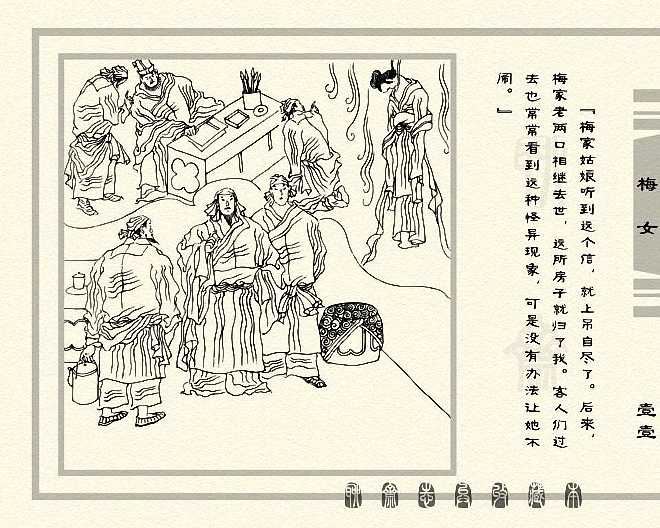 『梅家姑娘听到这个信，就上吊自尽了。后来，
梅家老两口相继去世，这所房子就归了我。客人们过
去也常常看到这种怪异现象，可是没有办法让她不
闹。』
梅女
壹壹
聊斋志异收藏本